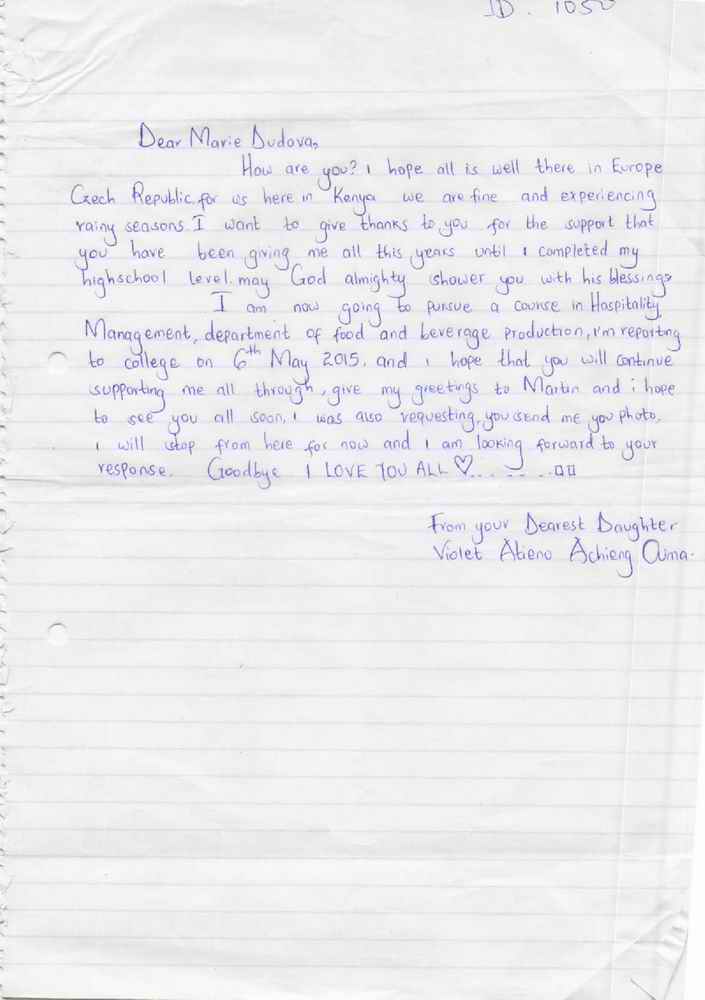 ID. 1050
Dear Marie Dudova,
How are you? I hope all is well there in Europe
Czech Republic. for us here in Kenya we are fine and experiencing
rainy seasons. I want to give thanks to you for the support that
you have been giving me all this years until I completed my
highschool level. may God almighty shower you with his blessings
I am now going to pursue a course in Hospitality
Management, department of food and beverage production, I'm reporting
to college on 6th May 2015. and I hope that you will continue
supporting me all through, give my greetings to Martin and i hope
to see you all soon, I was also requesting, you send me you photo.
I will stop from here for now and I am looking forward to your
response. Goodbye I LOVE YOU ALL ♡.. . - .. ..▯▯
From your Dearest Daughter
Violet Atieno Achieng Ouma.